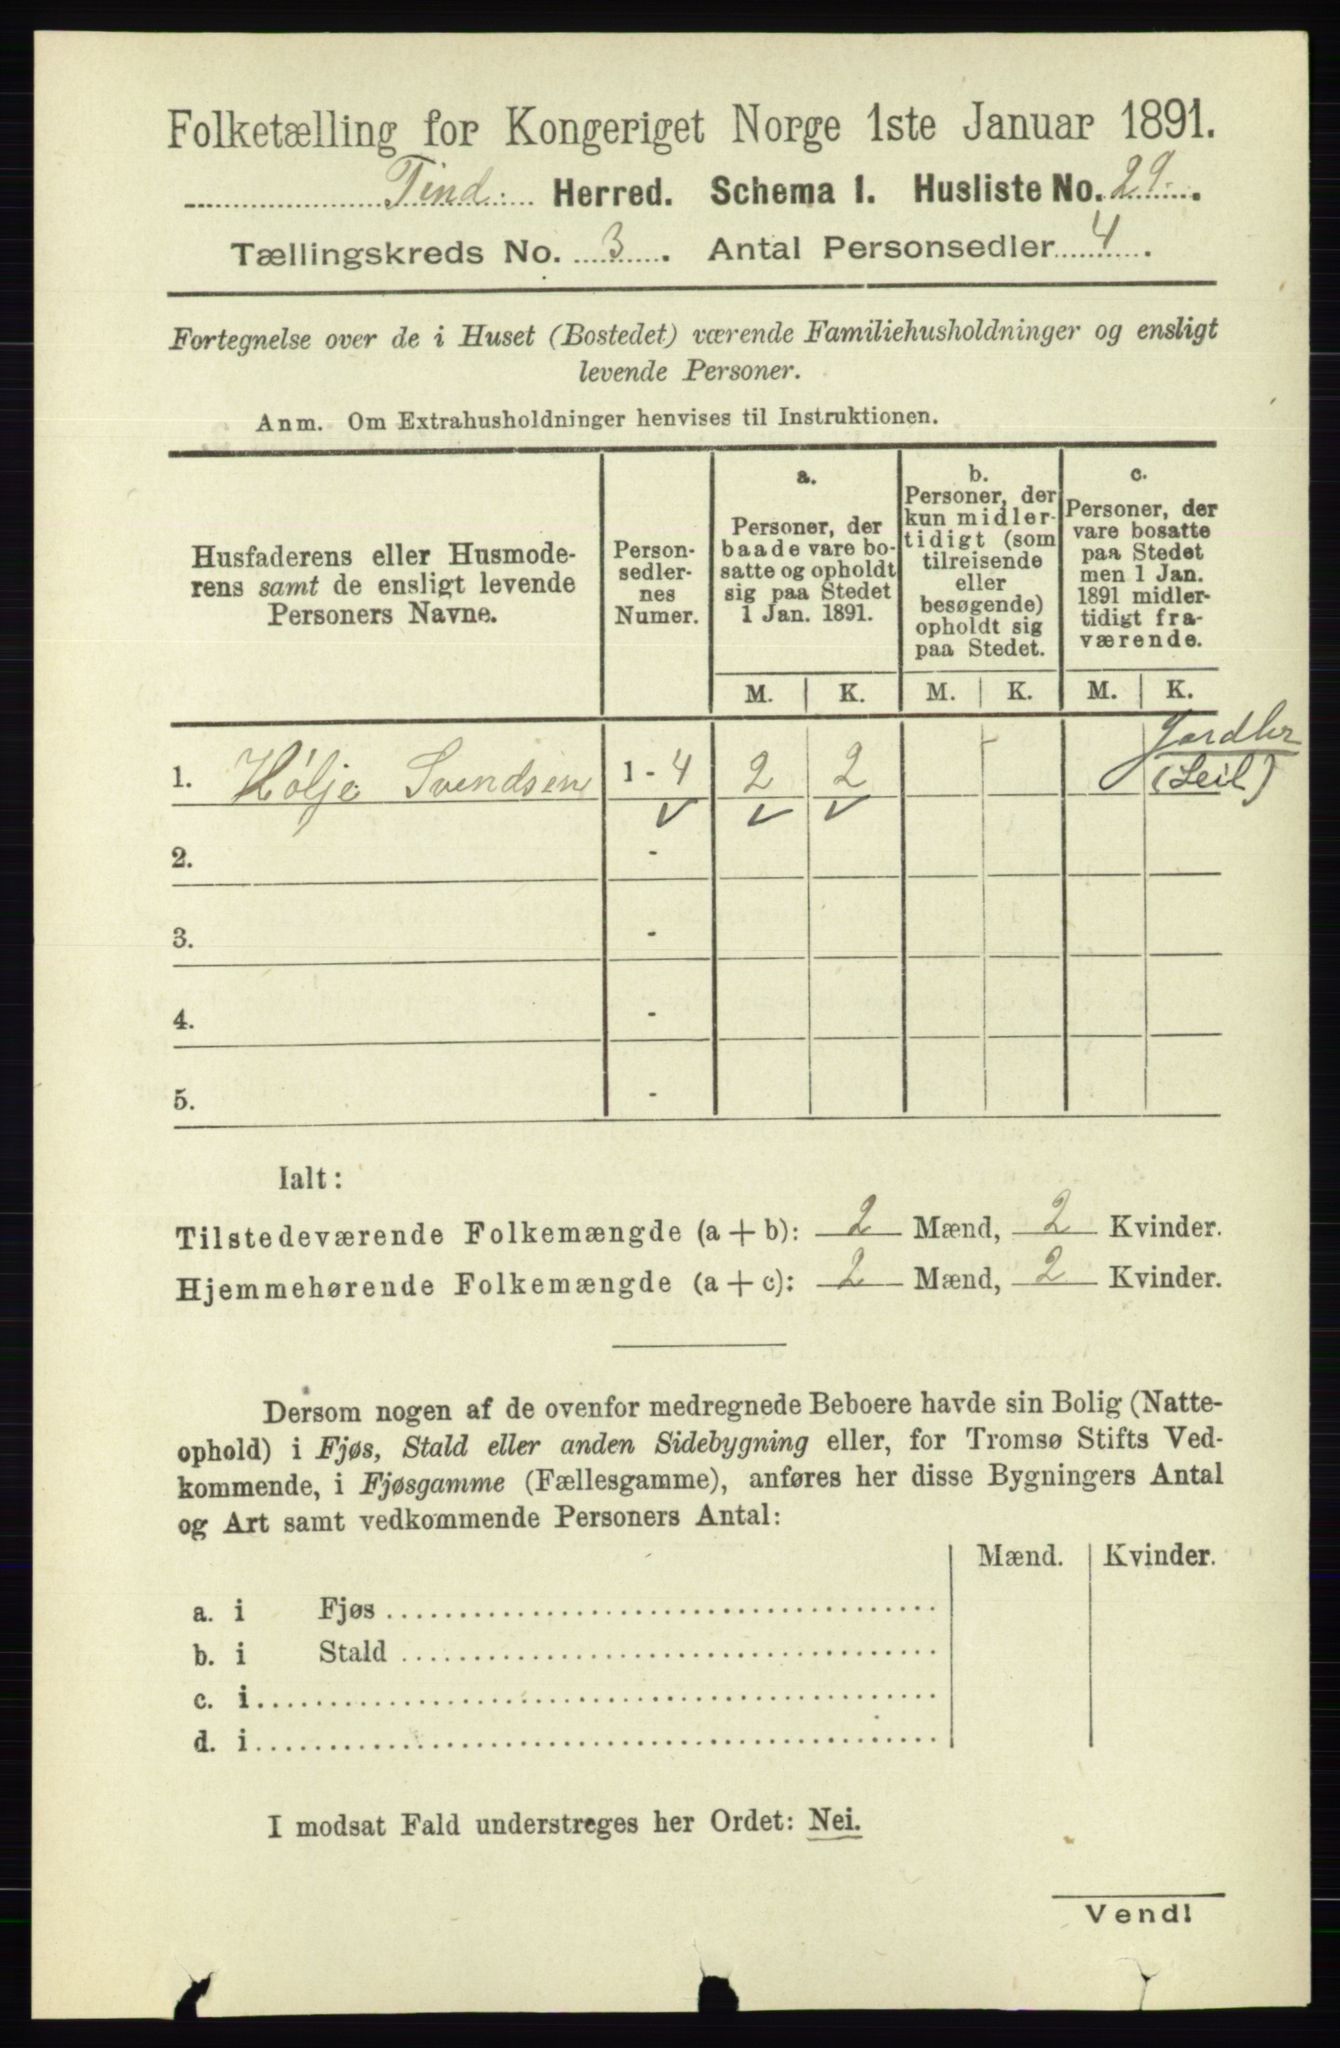 Folketælling for Kongeriget Norge 1ste Januar 1891.
Tind. Herred. Schema 1. Husliste No. 29.
Tællingskreds No. 3. Antal Personsedler 4.
Fortegnelse over de i Huset (Bostedet) værende Familiehusholdninger og ensligt
levende Personer.
Anm. Om Extrahusholdninger henvises til Instruktionen.
Husfaderens eller Husmode-
rens samt de ensligt levende
Personers Navne.
Person-
sedler-
nes
Numer.
a.
Personer, der
baade vare bo-
satte og opholdt
sig paa Stedet
1 Jan. 1891.
b.
Personer, der
kun midler-
tidigt (som
tilreisende
eller
besøgende)
opholdt sig
paa Stedet.
c.
Personer, der
vare bosatte
paa Stedet
men 1 Jan.
1891 midler-
tidigt fra-
værende.
M. K. M. K. M. K.
1. Hølje Svendsen 1 - 4 2 2
(Leil)
2. -
3. -
4. -
5. -
Ialt:
Tilstedeværende Folkemængde (a + b): 2 Mænd, 2 Kvinder.
Hjemmehørende Folkemængde (a + c): 2 Mænd, 2 Kvinder.
Dersom nogen af de ovenfor medregnede Beboere havde sin Bolig (Natte-
ophold) i Fjøs, Stald eller anden Sidebygning eller, for Tromsø Stifts Ved-
kommende, i Fjøsgamme (Fællesgamme), anføres her disse Bygningers Antal
og Art samt vedkommende Personers Antal:
Mænd. Kvinder.
a. i Fjøs
b. i Stald
c. i
d. i
I modsat Fald understreges her Ordet: Nei.
Vend!